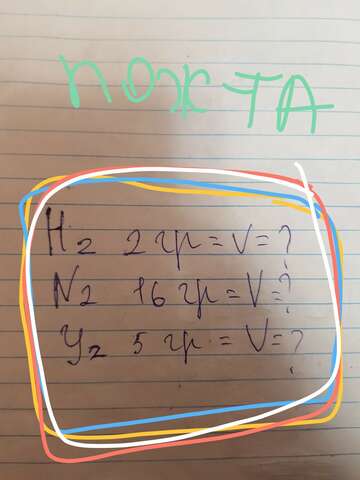 пож TA
H2 2 гр = V = ?
N2 16 гр = V = ?
У2 5 гр. = V = ?